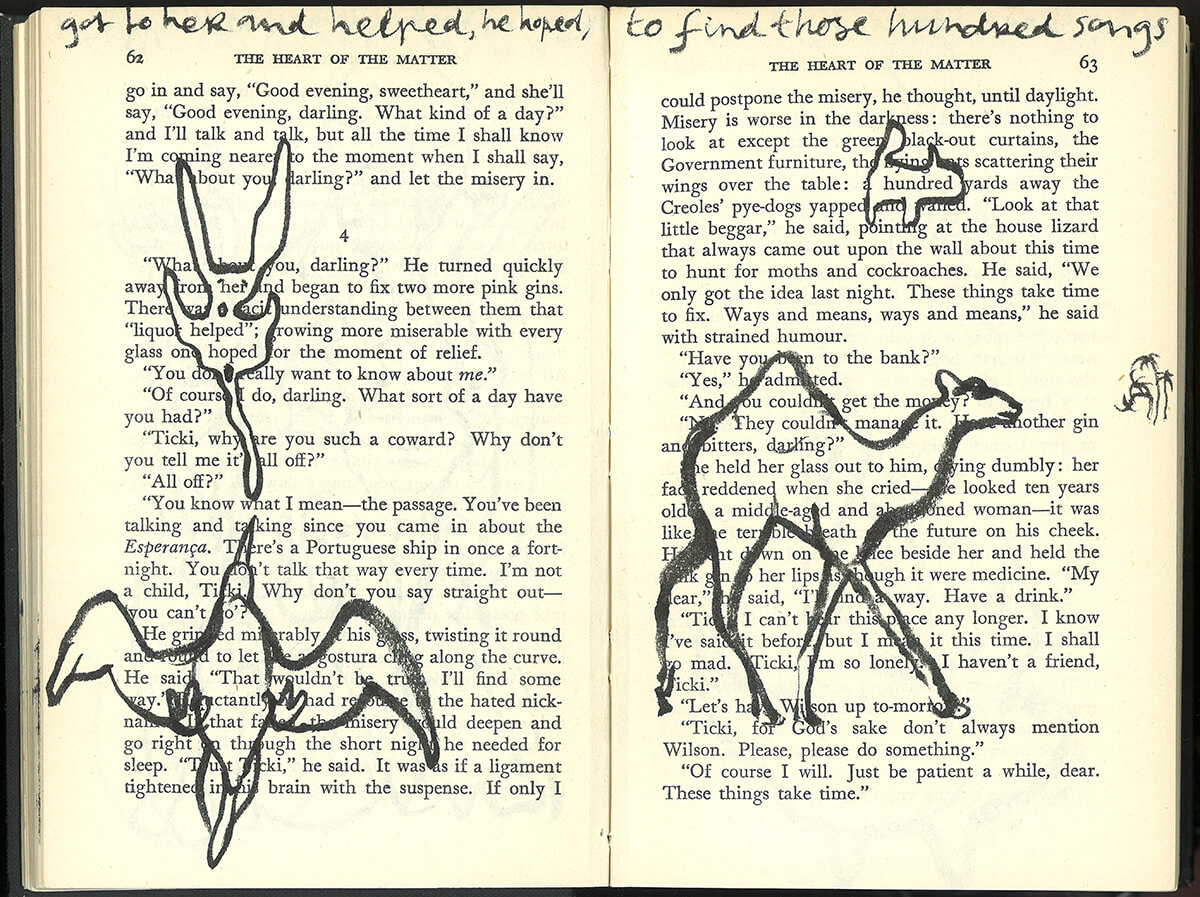 got to her and helped, he hoped,
62 THE HEART OF THE MATTER
go in and say, “Good evening, sweetheart,” and she’ll
say, “Good evening, darling. What kind of a day?”
and I’ll talk and talk, but all the time I shall know
I’m coming nearer to the moment when I shall say,
“What about you, darling?” and let the misery in.
4
“What about you, darling?” He turned quickly
away from her and began to fix two more pink gins.
There was a tacit understanding between them that
“liquor helped”; growing more miserable with every
glass one hoped for the moment of relief.
“You don’t really want to know about me.”
“Of course I do, darling. What sort of a day have
you had?”
“Ticki, why are you such a coward? Why don’t
you tell me it’s all off?”
“All off?”
“You know what I mean—the passage. You’ve been
talking and talking since you came in about the
Esperança. There’s a Portuguese ship in once a fort-
night. You don’t talk that way every time. I’m not
a child, Ticki. Why don’t you say straight out—
‘you can’t go’?”
He gripped miserably at his glass, twisting it round
and round to let the angostura cling along the curve.
He said, “That wouldn’t be true. I’ll find some
way.” Reluctantly he had recourse to the hated nick-
name. If that failed, the misery would deepen and
go right on through the short night he needed for
sleep. “Trust Ticki,” he said. It was as if a ligament
tightened in his brain with the suspense. If only I
to find those hundred songs
THE HEART OF THE MATTER 63
could postpone the misery, he thought, until daylight.
Misery is worse in the darkness: there’s nothing to
look at except the green black-out curtains, the
Government furniture, the flying ants scattering their
wings over the table: a hundred yards away the
Creoles’ pye-dogs yapped and wailed. “Look at that
little beggar,” he said, pointing at the house lizard
that always came out upon the wall about this time
to hunt for moths and cockroaches. He said, “We
only got the idea last night. These things take time
to fix. Ways and means, ways and means,” he said
with strained humour.
“Have you been to the bank?”
“Yes,” he admitted.
“And you couldn’t get the money?”
“No. They couldn’t manage it. Have another gin
and bitters, darling?”
She held her glass out to him, crying dumbly: her
face reddened when she cried—she looked ten years
older, a middle-aged and abandoned woman—it was
like the terrible breath of the future on his cheek.
He went down on one knee beside her and held the
pink gin to her lips as though it were medicine. “My
dear,” he said, “I’ll find a way. Have a drink.”
“Ticki, I can’t bear this place any longer. I know
I’ve said it before, but I mean it this time. I shall
go mad. Ticki, I’m so lonely. I haven’t a friend,
Ticki.”
“Let’s have Wilson up to-morrow.”
“Ticki, for God’s sake don’t always mention
Wilson. Please, please do something.”
“Of course I will. Just be patient a while, dear.
These things take time.”